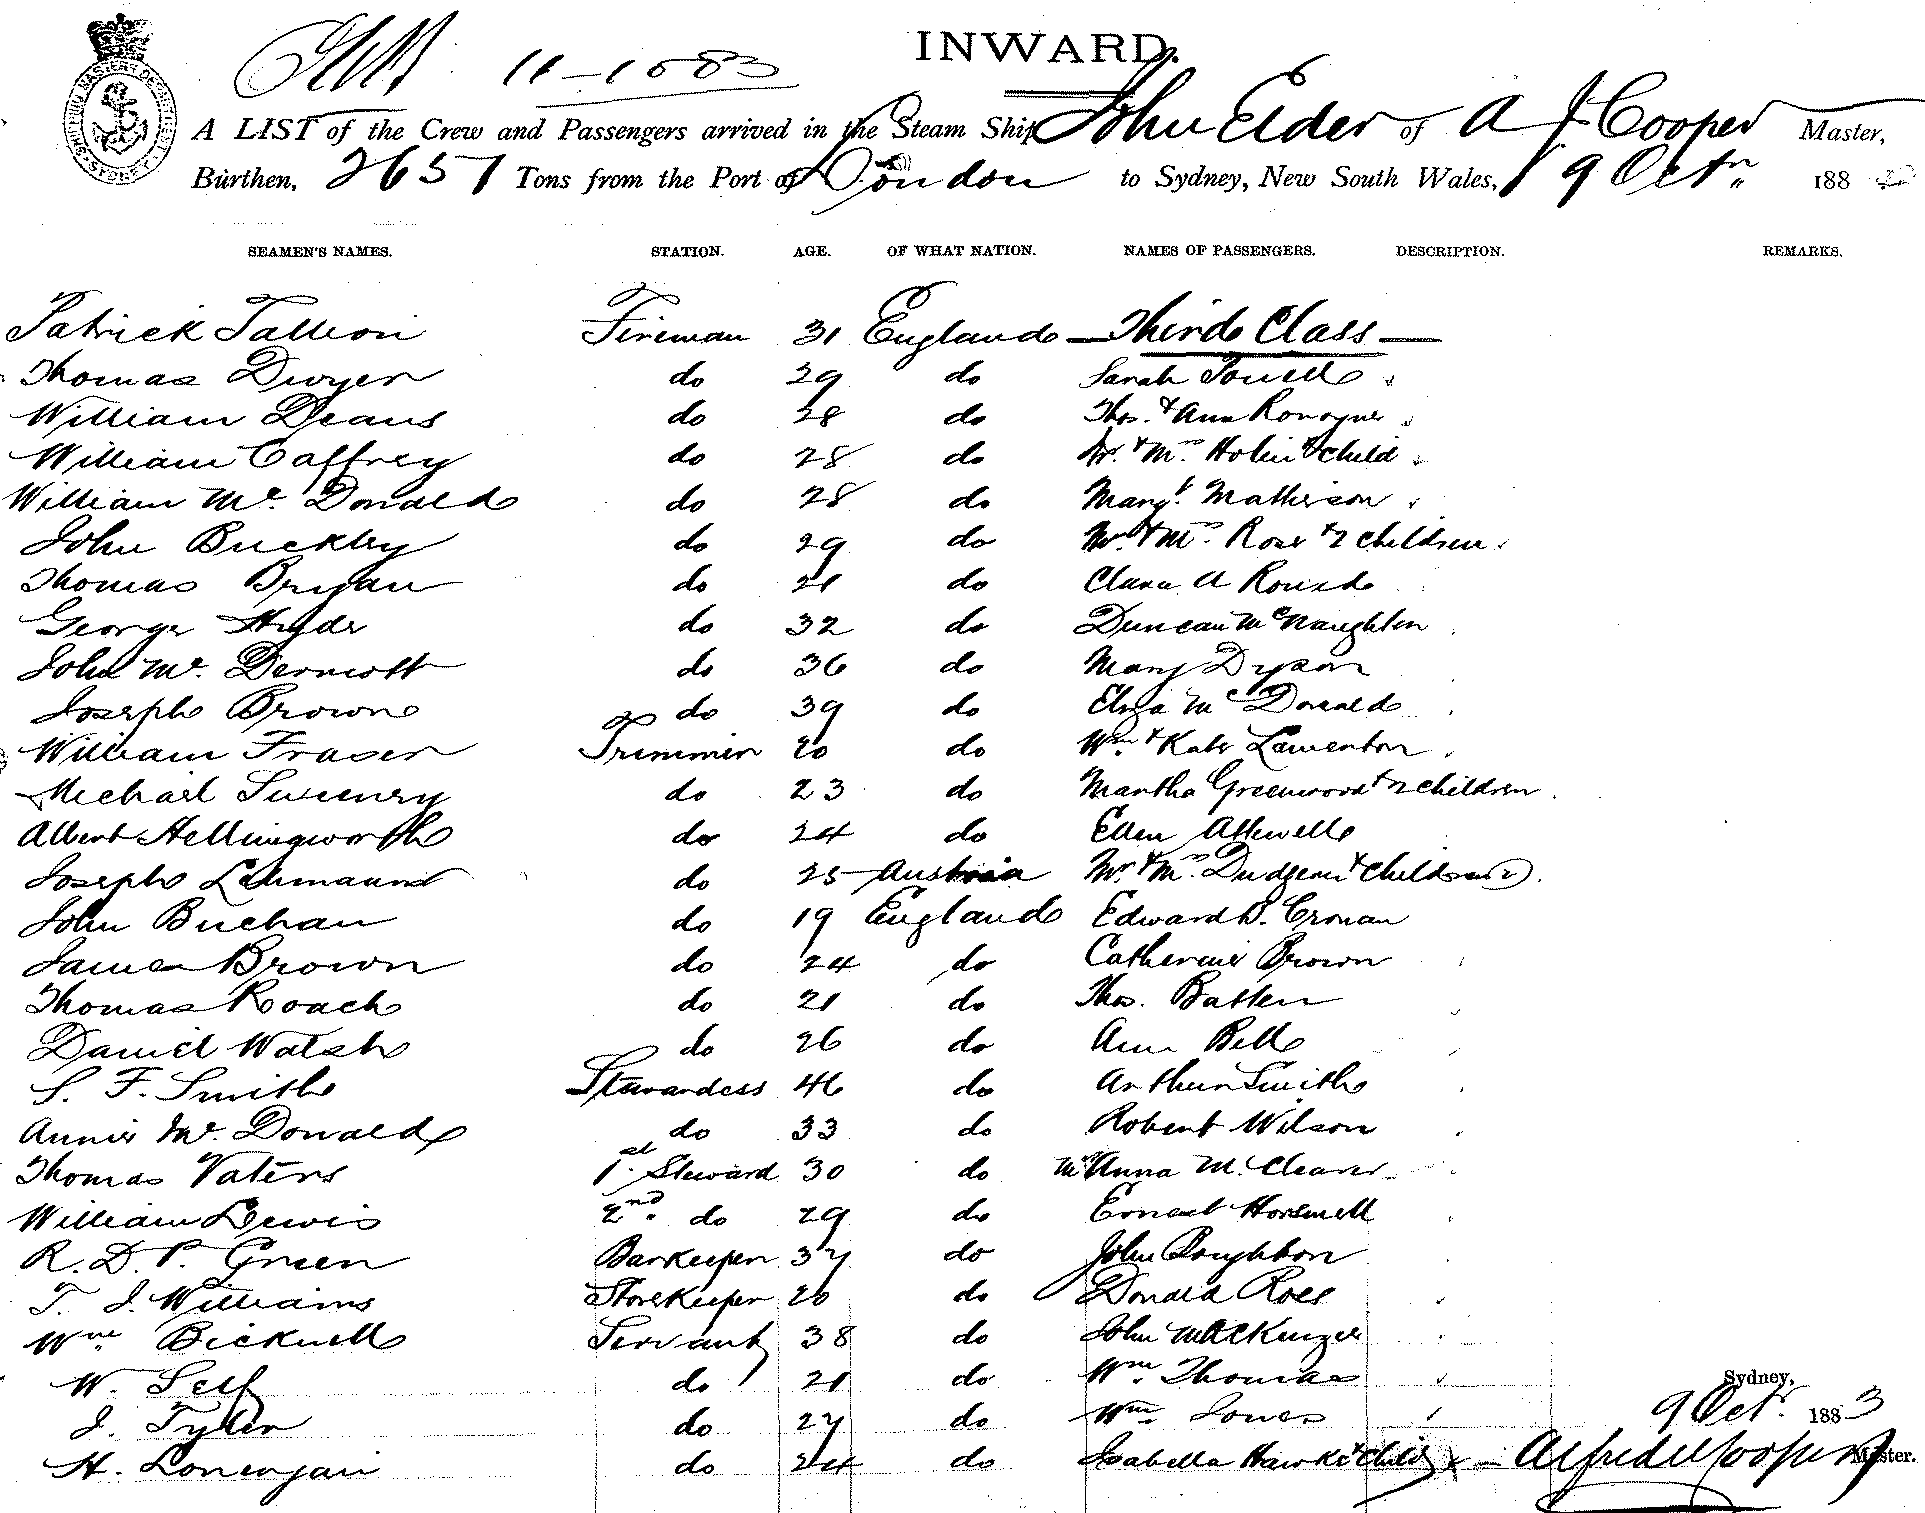 INWARD.
11-10 83
A LIST of the Crew and Passengers arrived in the Steam Ship John Elder of A J Cooper Master,
Burthen, 2651 Tons from the Port of London to Sydney, New South Wales, 9 Octr 188
SEAMEN'S NAMES. STATION. AGE. OF WHAT NATION. NAMES OF PASSENGERS. DESCRIPTION. REMARKS.
Patrick Fireman 31 England — Third Class —
Thomas Dwyer do 29 do Sarah
William Deans do 28 do Thos. & Ann Ronayne
William Caffrey do 28 do Mr. & Mrs. & child
William Mc. Donald do 28 do Margt. Matherson
John Buckley do 29 do Mr. & Mrs. Rose & 2 children
Thomas Bryan do 21 do Clara A
George Hyder do 32 do Duncan McNaughton
John Mc. Dermott do 36 do Mary Dyson
Joseph Brown do 39 do Eliza Mc Donald
William Fraser Trimmer 20 do Wm. & Kate
Michael Sweeney do 23 do Martha Greenwood & 2 children
Albert Hellingworth do 24 do Ellen Attwell
Joseph Lehmann do 25 Austria Mr. & Mrs. Dudgeon & children (2)
John Buchan do 19 England Edward D. Cronan
James Brown do 24 do Catherine Brown
Thomas Roach do 21 do Thos. Batten
Daniel Walsh do 26 do Ann Bell
S. F. Smith Stewardess 46 do Arthur Smith
Annie Mc. Donald do 33 do Robert Wilson
Thomas Vaters 1st. Steward 30 do Anna M. Cleave
William Lewis 2nd. do 29 do Ernest Horswell
R. D. P. Green Barkeeper 37 do John Boughton
T. J. Williams Storekeeper 20 do Donald Ross
Wm Bicknell Servant 38 do John MacKenzie
W. Self do 21 do Wm. Thomas
J. Tyler do 27 do Wm. Jones
H. Lonergan do 24 do Isabella Hawke & Child
Sydney,
9 Oct. 1883
Alfred J Cooper Master.